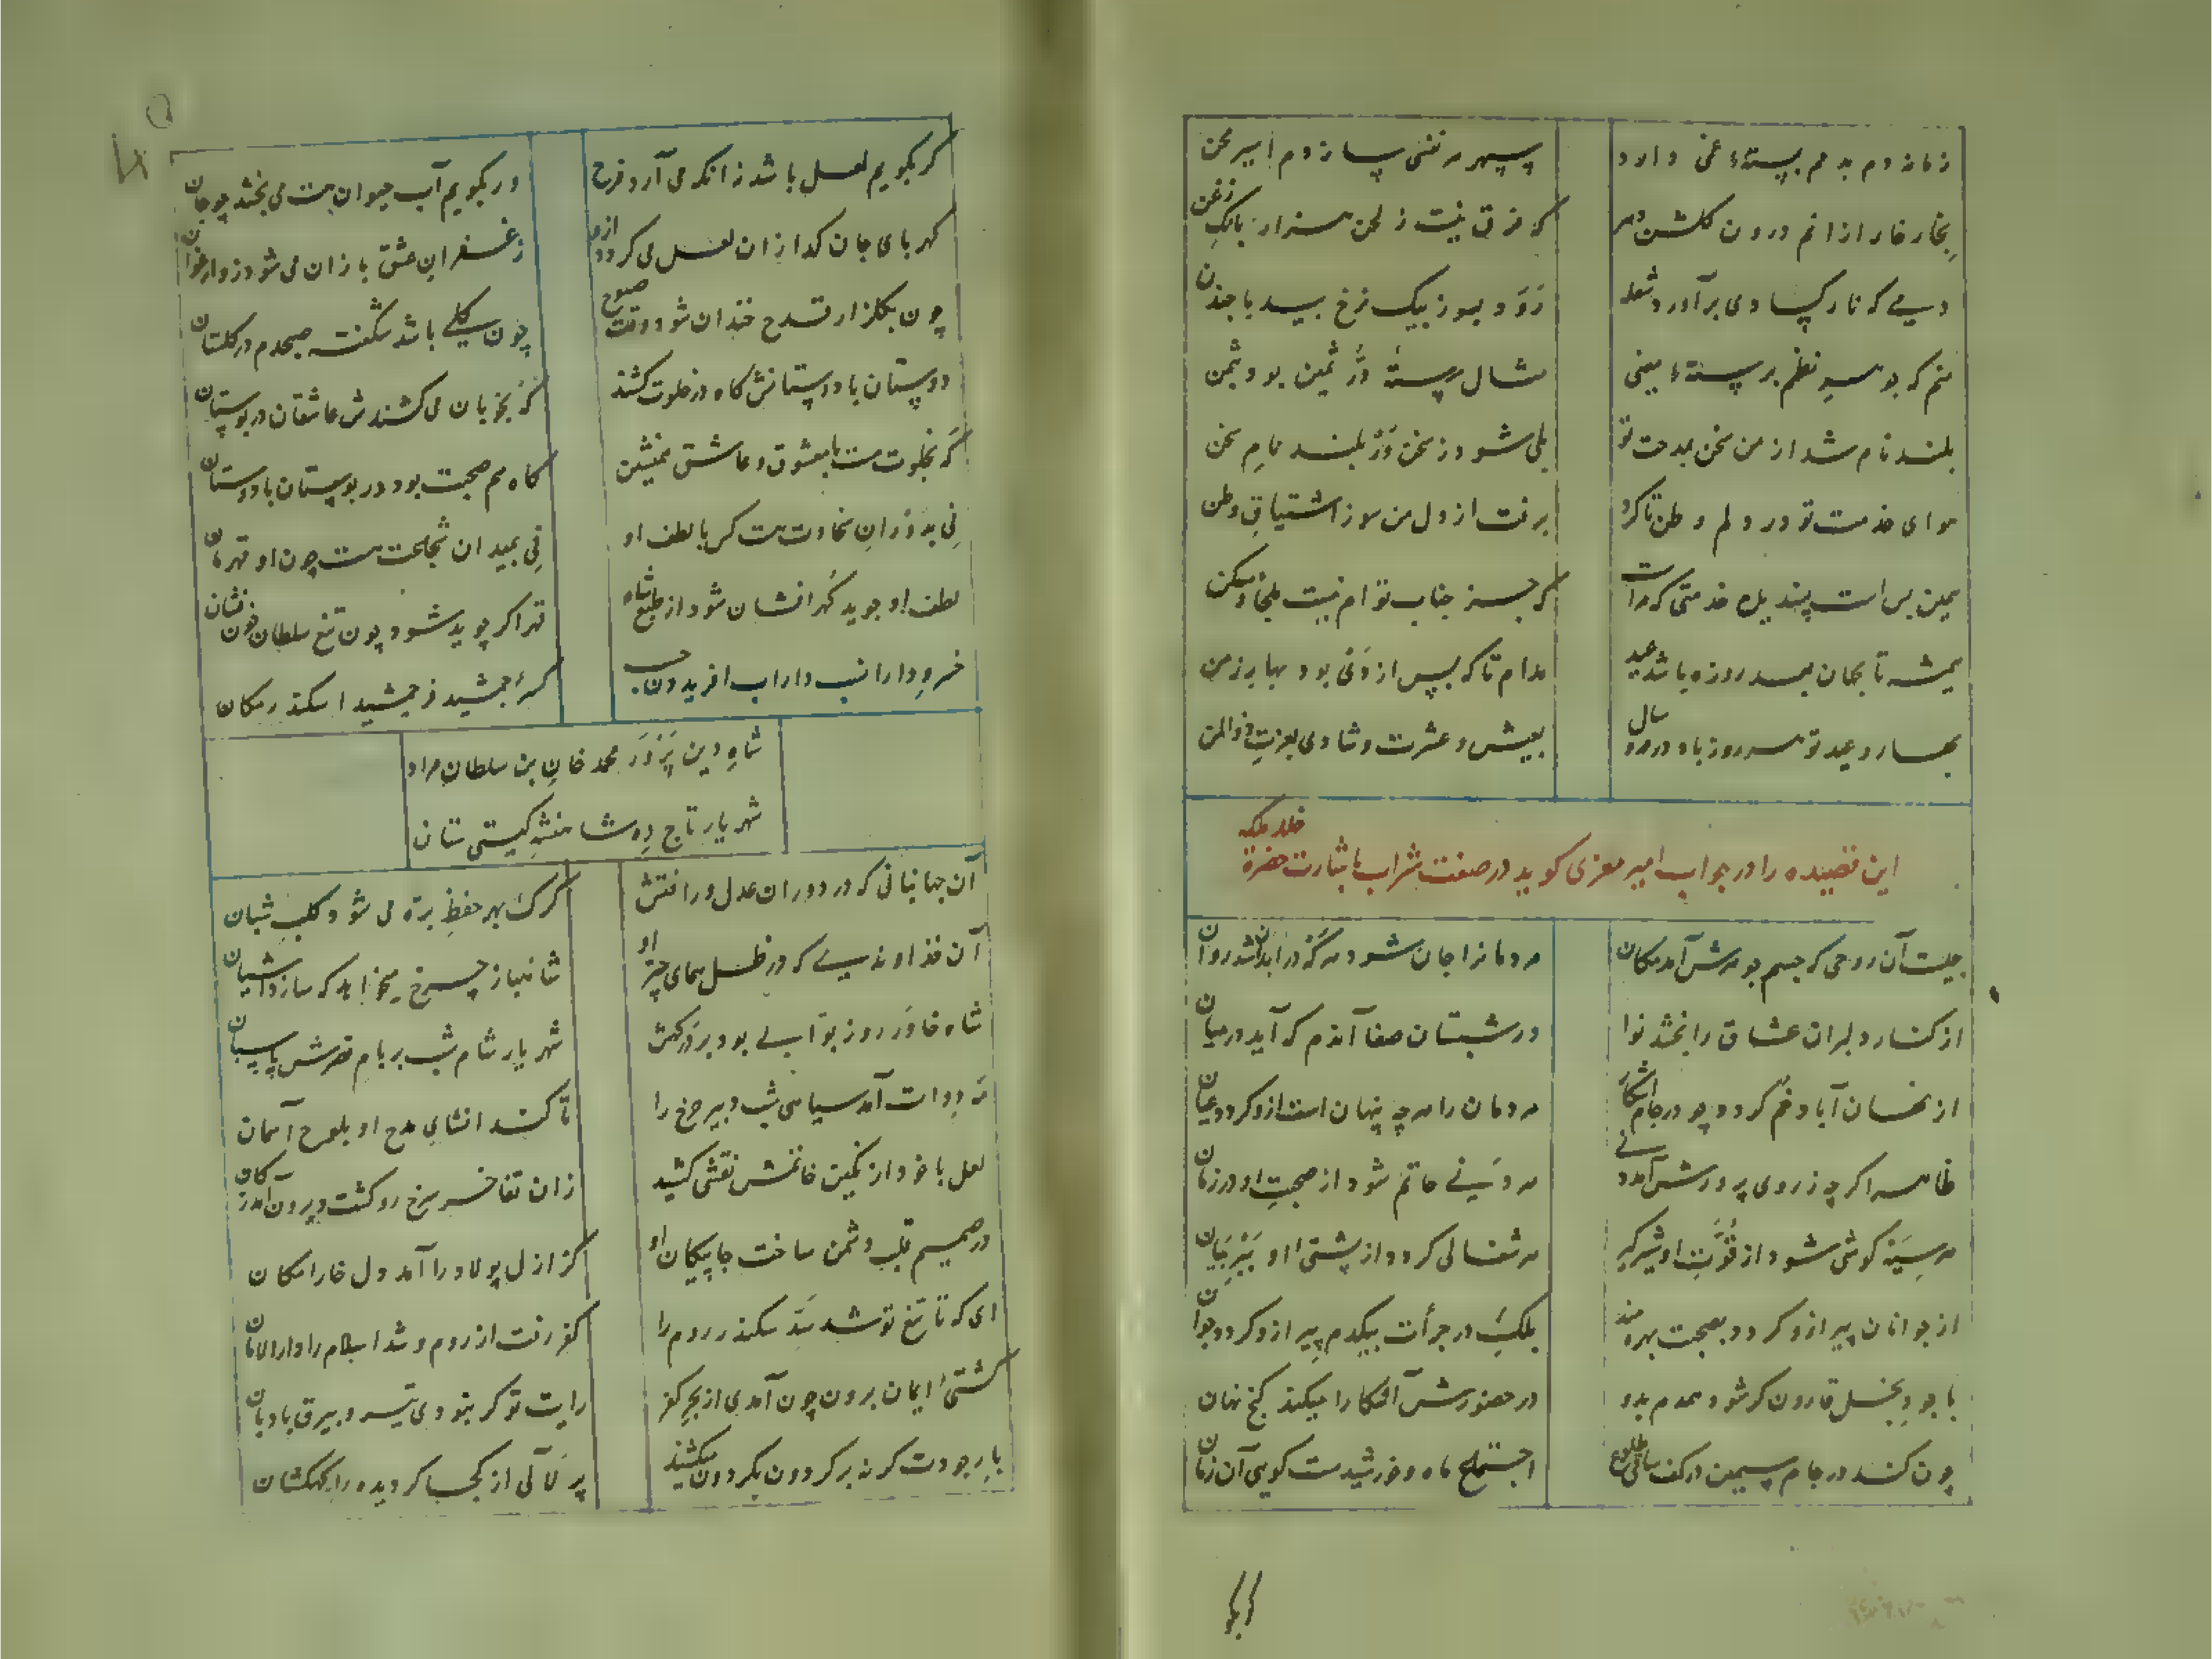 زمانه دم بدم بسته غمی دارد
سپهر مر نفسی سازدم اسیر محن
بخار خار ازانم درون کلشن دهر
که فرق نیست ز لحن هزار بانک زغن
دمی که نار کسادی برآورد شعله
رود بسوز بیک نرخ بید با چندن
منم که بر سر نظم رسته بینی
مثال رسته در ثمین بود ثمن
بلند نام شد از من سخن بمدحت تو
بلی شود ز سخنور بلند نام سخن
هوای خدمت تو در دلم وطن تا کرد
برفت از دل من سوز اشتیاق وطن
همین بس است خدمتی که مراست
که جز جناب توام نیست ملجا و مسکن
همیشه تا بجهان بعد روزه باشد عید
مدام تا که پس از دی بود بهار زمن
بهار و عید تو هر روز باد در مه و سال
بعیش و عشرت و شادی بعزت ذوالمن
این قصیده را در جواب امیر معزی کوید در صفت شراب باشارت حضرة خلد ملکه
چیست آن روحی که جسم جوهرش آمد مکان
مردمانرا جان شود هرکه در ابدان شد روان
از کنار دلبران عشاق را بخشد نوا
در شبستان صفا آندم که آید در میان
از نهان آباد خم کردد چو در جام آشکار
مردمان را هرچه پنهان است ازو کردد عیان
ظاهرا کرچه ز روی پرورش آمد دنی
هر دنیی حاتم شود از صحبت او در زمان
هر سیه کوشی شود از قوت او شیرکیر
هر شغالی کردد از پشتی او ببر بیان
از جوانان پیر ازو کردد بصحبت بهره مند
بلک در جرأت بیکدم پیر ازو کردد جوان
با جود بخل قارون کر شود همدم بدو
در حضورش آشکارا میکند کنج نهان
چون کند در جام سیمین در کف ساقی طلوع
اجتماع ماه و خورشیدست کویی آن زمان
کر بکویم لعل باشد زانکه می آرد فرح
ور بکویم آب حیوان هست می بخشد چو جان
کهربای جان کدازان لعل می کردد ازو
زعفران عشق بازان می شود زو ارغوان
چون بکلزار قدح خندان شود وقت صبوح
چون کلی باشد شکفته صبحدم در کلستان
دوستان با دوستانش کاه در خلوت کشند
که بخوبان می کشندش عاشقان در بوستان
که بخلوت هست با معشوق و عاشق همنشین
کاه هم صحبت بود در بوستان با دوستان
نی بدوران سخاوت هست کس با لطف او
نی بمیدان شجاعت هست چون او قهرمان
لطف او جوید کهر افشان شود از طبع شاه
قهر اکر جوید شود چون تیغ سلطان خون فشان
خسرو دارا نسب داراب افریدون حسب
کسرئ جمشید فر جمشید اسکندر مکان
شاه دین پرور محمد خان بن سلطان مراد
شهریار تاج ده شاهنشه کیتی ستان
آن جهانبانی که در دوران عدل و رافتش
کرک بهر حفظ بره می شود کلب شبان
آن خداوندی که در ظل همای چتر او
شاهباز چرخ میخواهد که سازد آشیان
شاه خاور روز بوابی بود بر درکهش
شهریار شام شب بر بام قصرش پاسبان
مه دوات آمد سیاهی شب دبیر چرخ را
تا کند انشای مدح او بلوح آسمان
لعل با خود از نکین خاتمش نقشی کشید
زان تفاخر سرخ رو کشت و برون آمد ز کان
در صمیم قلب دشمن ساخت جا پیکان او
کز ازل پولاد را آمد دل خارا مکان
ای که تا تیغ تو شد سد سکندر روم را
کفر رفت از روم و شد اسلام را دارالامان
کشتئ ایمان برون چون آمدی از بحر کفر
رایت تو کر نبودی تیر و بیرق بادبان
بار جودت کر نه بر کردون بکردون میکشند
پر لآلی از کجا کردیده راه کهکشان